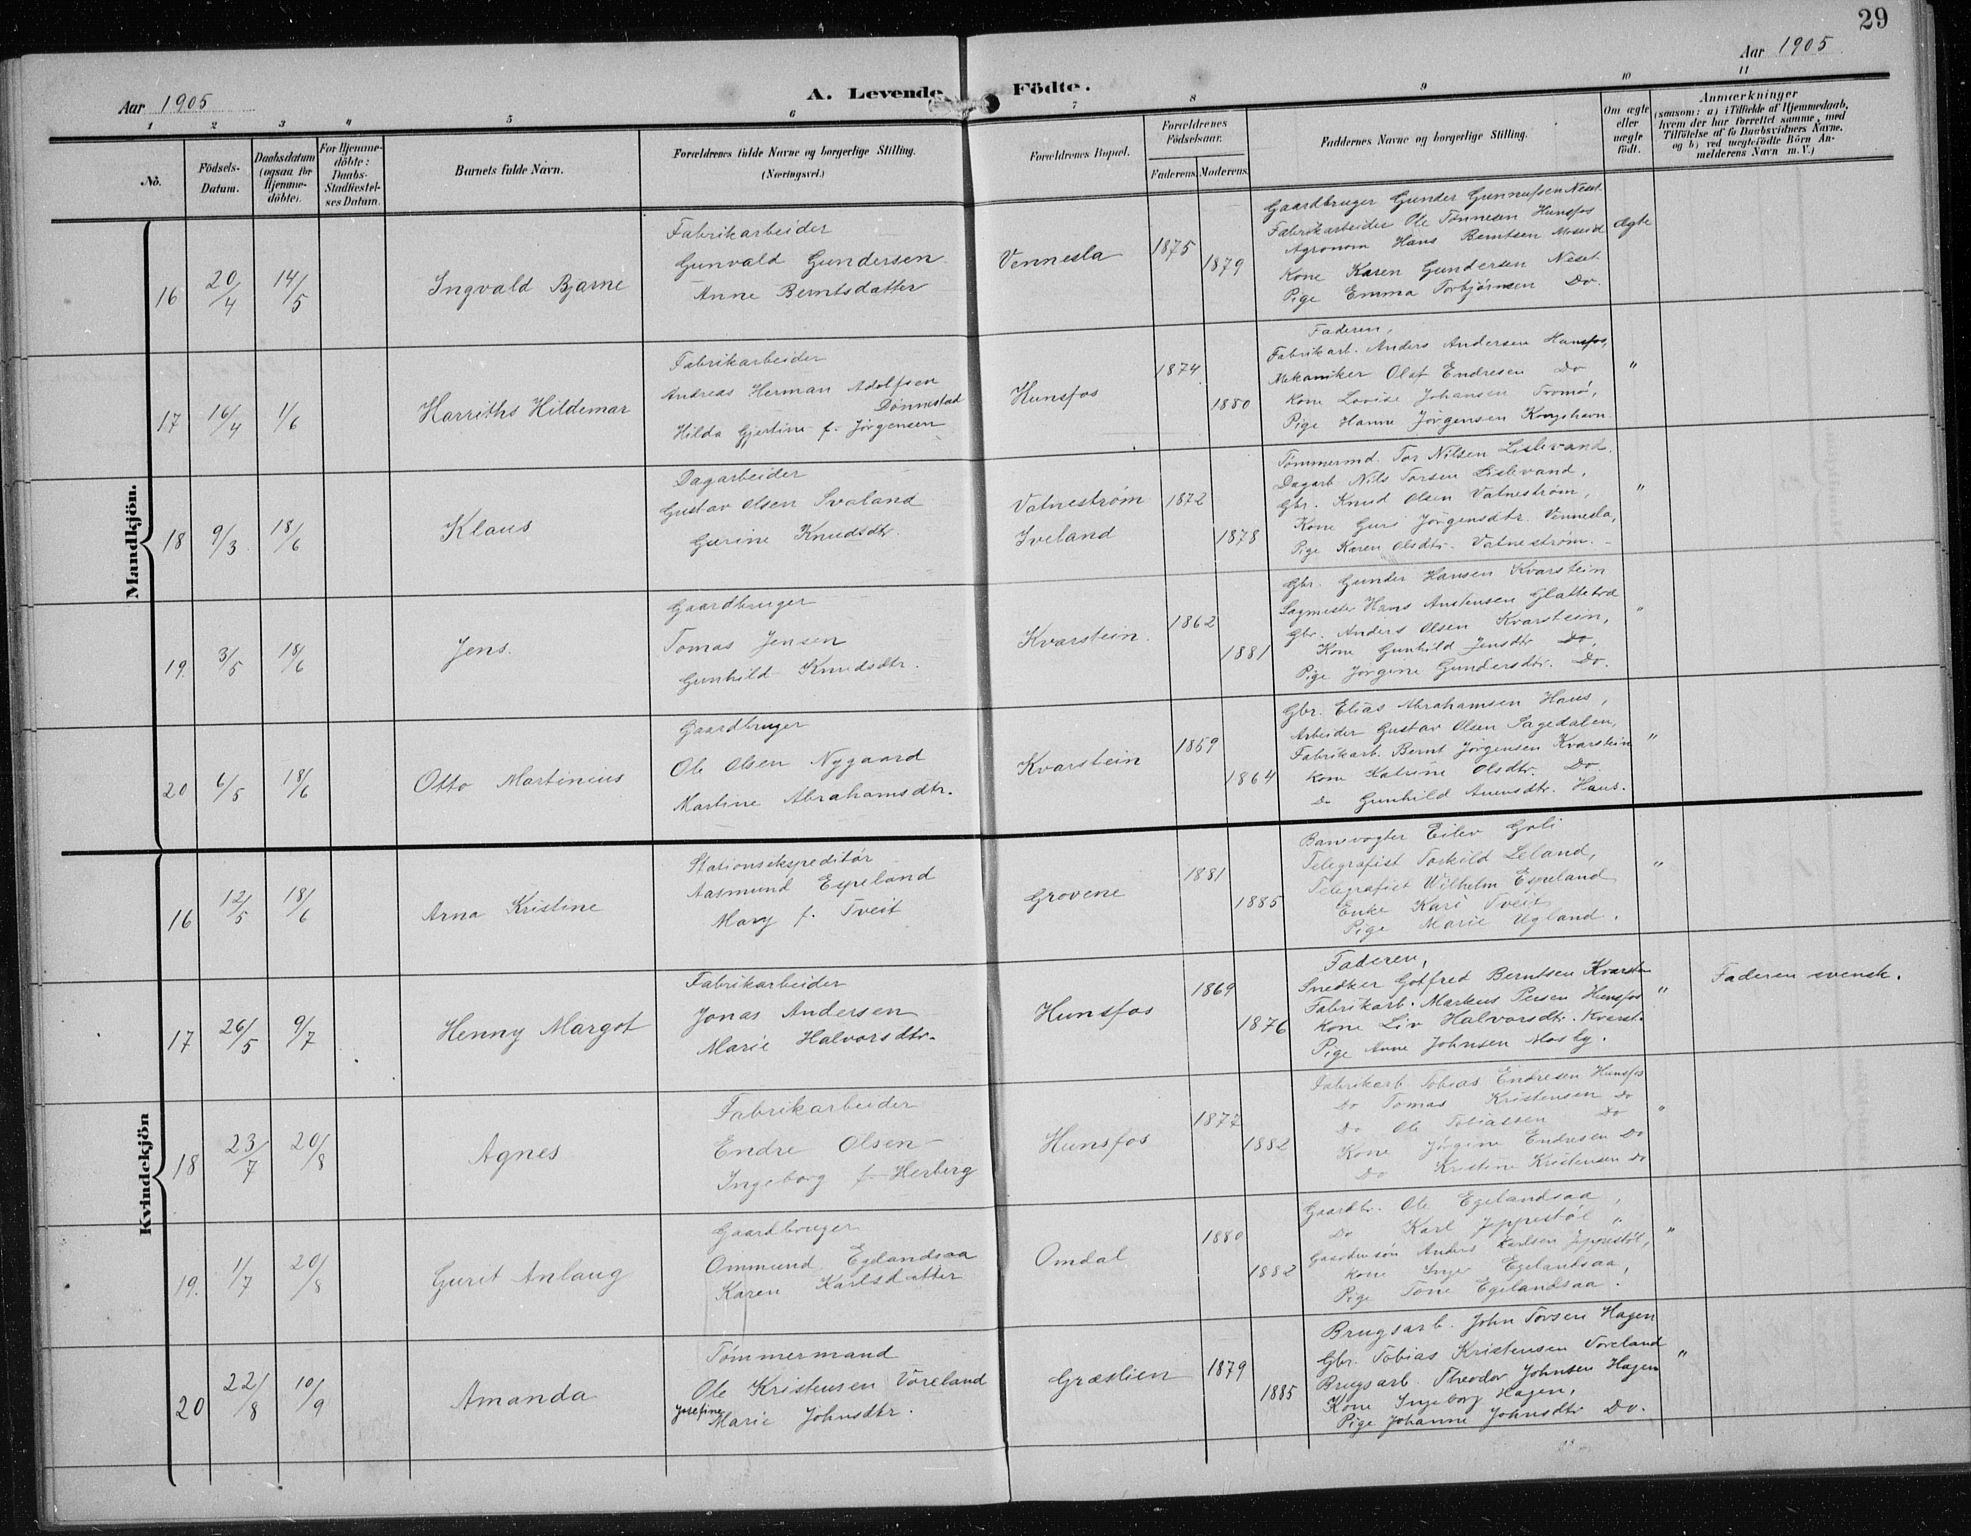 29
Aar 1905
Aar 1905
A. Levende Födte.
1 2 3 4 5 6 7 8 9 10 11
No.
Födsels-
Datum.
Daabsdatum
(ogsaa for
Hjemme-
döbte).
For Hjemme-
döbte:
Daabs-
Stadfæstel-
ses Datum.
Barnets fulde Navn.
Forældrenes fulde Navne og borgerlige Stilling.
(Næringsvei.)
Forældrenes Bopæl.
Forældrenes
Födselsaar.
Faderens. Moderens.
Faddernes Navne og borgerlige Stilling.
Om ægte
eller
uægte
födt.
Anmærkninger
(saasom: a) i Tilfælde af Hjemmedaab,
hvem der har forrettet samme, med
Tilföielse af to Daabsvidners Navne,
og b) ved uægtefödte Börn An-
melderens Navn m. V.)
Mandkjön.
16 20/4 14/5 Ingvald Bjarne
Fabrikarbeider
Gunvald Gundersen
Anne Berntsdatter
Vennesla 1875 1879
Gaardbruger Gunder Gunnufsen Neset
Fabrikarbeider Ole Tönnesen Hunsfos
Agronom Hans Berntsen Moseid
Kone Karen Gundersen Neset
Pige Emma Torbjörnsen Do.
Ægte
17 16/4 1/6 Harriths Hildemar
Fabrikarbeider
Andreas Herman Adolfsen
Dönnestad
Hilda Gjertine f. Jörgensen
Hunsfos 1874 1880
Faderen,
Fabrikarb. Anders Andersen Hunsfos,
Mekaniker Olaf Endresen Do
Kone Lovise Johansen Tromö,
Pige Hanne Jörgensen Kongshavn
"
18 9/3 18/6 Klaus
Dagarbeider
Gustav Olsen Svaland
Gurine Knudsdtr.
Vatneström
Iveland
1872 1878
Tömmermd. Tor Nilsen Lislevand.
Dagarb Nils Torsen Lislevand,
Gbr. Knud Olsen Vatneström,
Kone Guri Jörgensdtr. Vennesla,
Pige Karen Olsdtr. Vatneström.
"
19. 3/5 18/6 Jens.
Gaardbruger
Tomas Jensen
Gunhild Knudsdtr.
Kvarstein. 1862 1881
Gbr. Gunder Hansen Kvarstein
Sagmester Hans Anstensen Glattetræ
Gbr. Anders Olsen Kvarstein,
Kone Gunhild Jensdtr. Do,
Pige Jörgine Gundersdtr. Do.
"
20 6/5 18/6 Otto Martinius
Gaardbruger
Ole Olsen Nygaard
Martine Abrahamsdtr.
Kvarstein 1859 1864
Gbr. Elias Abrahamsen Haus,
Arbeider Gustav Olsen Sagedalen,
Fabrikarb. Bernt Jörgensen Kvarstein
Kone Katrine Olsdtr. Do
Do Gunhild Haus.
"
Kvindekjön
16 12/5 18/6 Arna Kristine
Stationsekspeditör
Aasmund Espeland
Mary f. Tveit
Grovene 1881 1885
Banevogter Eilev Goli
Telegrafist Torkild Leland,
Telegrafist Wilhelm Espeland
Enke Kari Tveit
Pige Marie Ugland.
"
17 26/5 9/7 Henny Margot
Fabrikarbeider
Jonas Andersen
Marie Halvorsdtr.
Hunsfos 1869 1876
Faderen,
Snedker Gotfred Berntsen Kvarsten
Fabrikarb. Markus Persen Hunsfos
Kone Liv Halvorsdtr. Kvarst.
Pige Anne Johnsen Mosby.
"
Faderen svensk.
18 23/7 20/8 Agnes
Fabrikarbeider
Endre Olsen
Ingeborg f. Herberg
Hunsfos 1877 1882
Fabrikarb Tobias Endresen Hunsfos
Do Tomas Kristensen Do
Do Ole Tobiassen Do
Kone Jörgine Endresen Do
Do Kristine Kristensen Do
"
19. 1/7 20/8 Gurit Anlaug
Gaardbruger
Ommund Egelandsaa
Karen Karlsdatter
Omdal 1880 1882
Gaardbr. Ole Egelandsaa,
Do Karl Jeppestöl "
Gaardmsön Anders Karlsen Jeppestöl,
Kone Inger Egelandsaa,
Pige Tone Egelandsaa.
"
20 22/8 10/9 Amanda
Tömmermand
Ole Kristensen Voreland
Josefine
Marie Johnsdtr.
Græslien 1879 1885
Brugsarb. John Torsen Hagen
Gbr. Tobias Kristensen Voreland
Brugsarb. Theodor Johnsen Hagen
Kone Ingeborg Hagen,
Pige Johanne Johnsdtr Do.
"